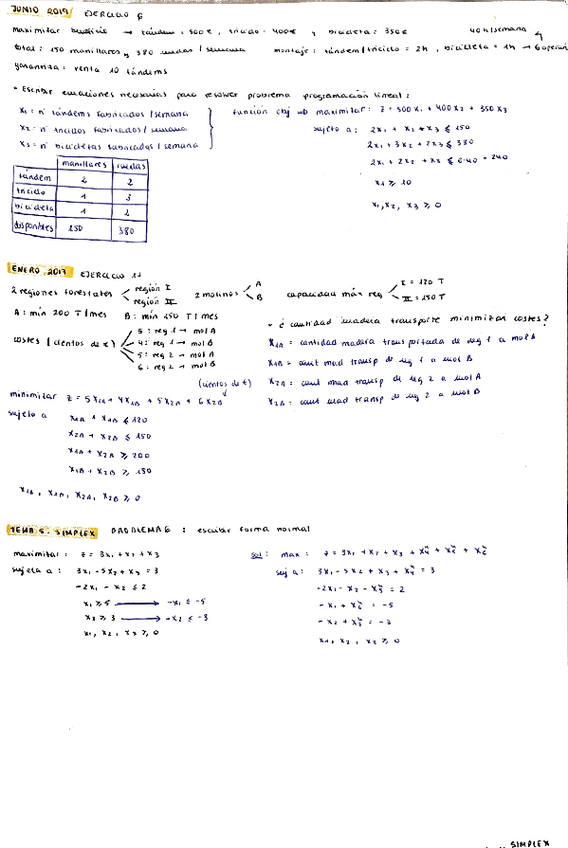 JUNIO 2019 EJERCICIO 6
maximizar beneficio → tándem = 500€, triciclo = 400€ y bicicleta = 350€ 40h/semana
total: 150 manillares y 380 ruedas / semana montaje: tándem/triciclo = 2h, bicicleta = 1h → 6
garantiza: venta 10 tándems
• Escribir ecuaciones necesarias para resolver problema programación lineal:
x₁ = nº tándems fabricados / semana
x₂ = nº triciclos fabricados / semana
x₃ = nº bicicletas fabricadas / semana
función obj ⇒ maximizar: z = 500x₁ + 400x₂ + 350x₃
sujeto a: 2x₁ + x₂ + x₃ ≤ 150
2x₁ + 3x₂ + 2x₃ ≤ 380
2x₁ + 2x₂ + x₃ ≤ 6·40 = 240
x₁ ≥ 10
x₁, x₂, x₃ ≥ 0
manillares ruedas
tándem 2 2
triciclo 1 3
bicicleta 1 2
disponibles 150 380
ENERO 2017 EJERCICIO 11
2 regiones forestales región I región II 2 molinos A B capacidad máx reg I = 120 T II = 150 T
A: mín 200 T/mes B: mín 150 T/mes
• ¿cantidad madera transporte minimizan costes?
costes (cientos de €)
5: reg 1 → mol A
4: reg 1 → mol B
5: reg 2 → mol A
6: reg 2 → mol B
x₁A = cantidad madera transportada de reg 1 a mol A
x₁B = cant mad transp de reg 1 a mol B
x₂A = cant mad transp de reg 2 a mol A
x₂B = cant mad transp de reg 2 a mol B
(cientos de €)
minimizar z = 5x₁A + 4x₁B + 5x₂A + 6x₂B
sujeto a x₁A + x₁B ≤ 120
x₂A + x₂B ≤ 150
x₁A + x₂A ≥ 200
x₁B + x₂B ≥ 150
x₁B, x₁A, x₂A, x₂B ≥ 0
TEMA 5: SIMPLEX PROBLEMA 6: escribir forma normal
maximizar: z = 3x₁ + x₂ + x₃
sujeta a: 3x₁ - 5x₂ + x₃ = 3
-2x₁ - x₂ ≤ 2
x₁ ≥ 5 → -x₁ ≤ -5
x₂ ≥ 3 → -x₂ ≤ -3
x₁, x₂, x₃ ≥ 0
sol: max: z = 3x₁ + x₂ + x₃
suj a:
= 3
= 2
= -5
= -3
x₁, x₂, x₃ ≥ 0
SIMPLEX